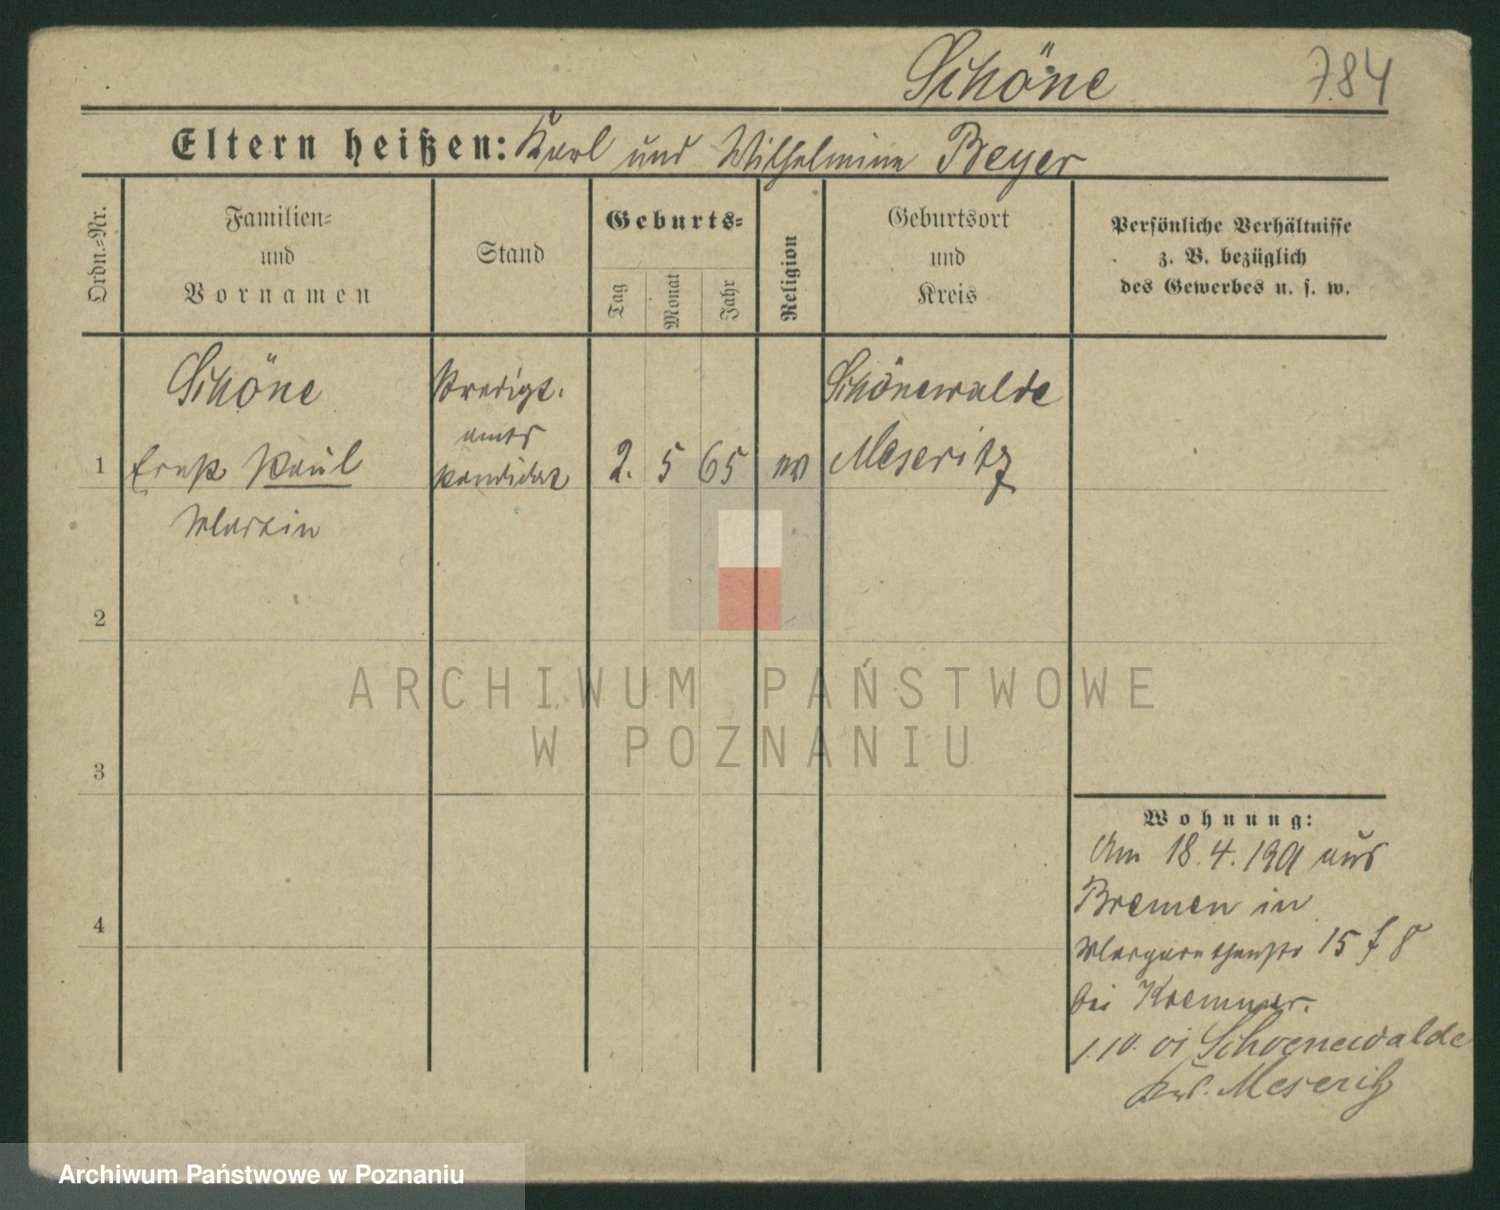 Schöne 784
Eltern heißen: Karl und Wilhelmine Beyer
Ordn.=Nr.
Familien=
und
Vornamen
Stand
Geburts=
Tag
Monat
Jahr
Religion
Geburtsort
und
Kreis
Persönliche Verhältnisse
z. B. bezüglich
des Gewerbes u. s. w.
Schöne Predigt. Schönewalde
amts
1 Ernst Paul kandidat 2. 5 65 ev Meseritz
Martin
2
ARCHIWUM PAŃSTWOWE
W POZNANIU
3
Wohnung:
Am 18.4.1901 aus
Bremen in
4
Margarethenstr 15
bei
1.10.01 Schoenewalde
Krs. Meseritz
Archiwum Państwowe w Poznaniu